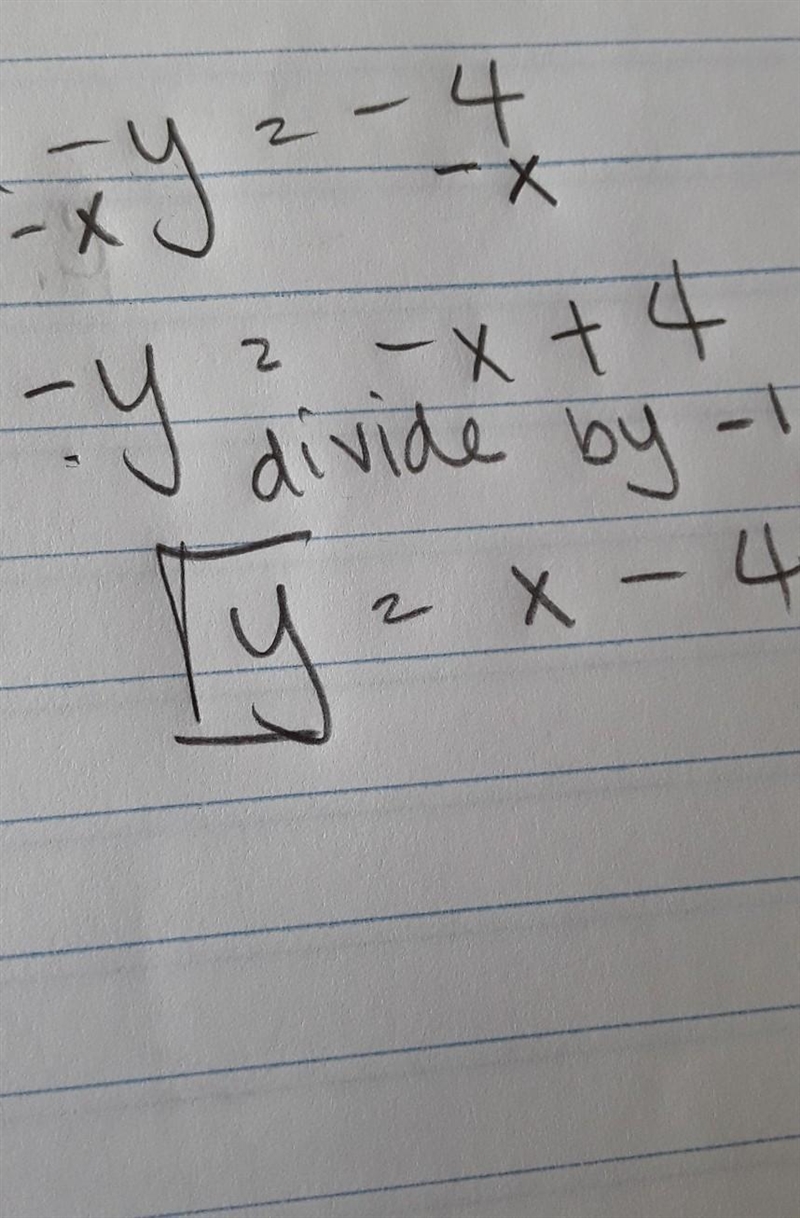 -y = - 4
-x -x
-y = -x + 4
divide by -1
y = x - 4